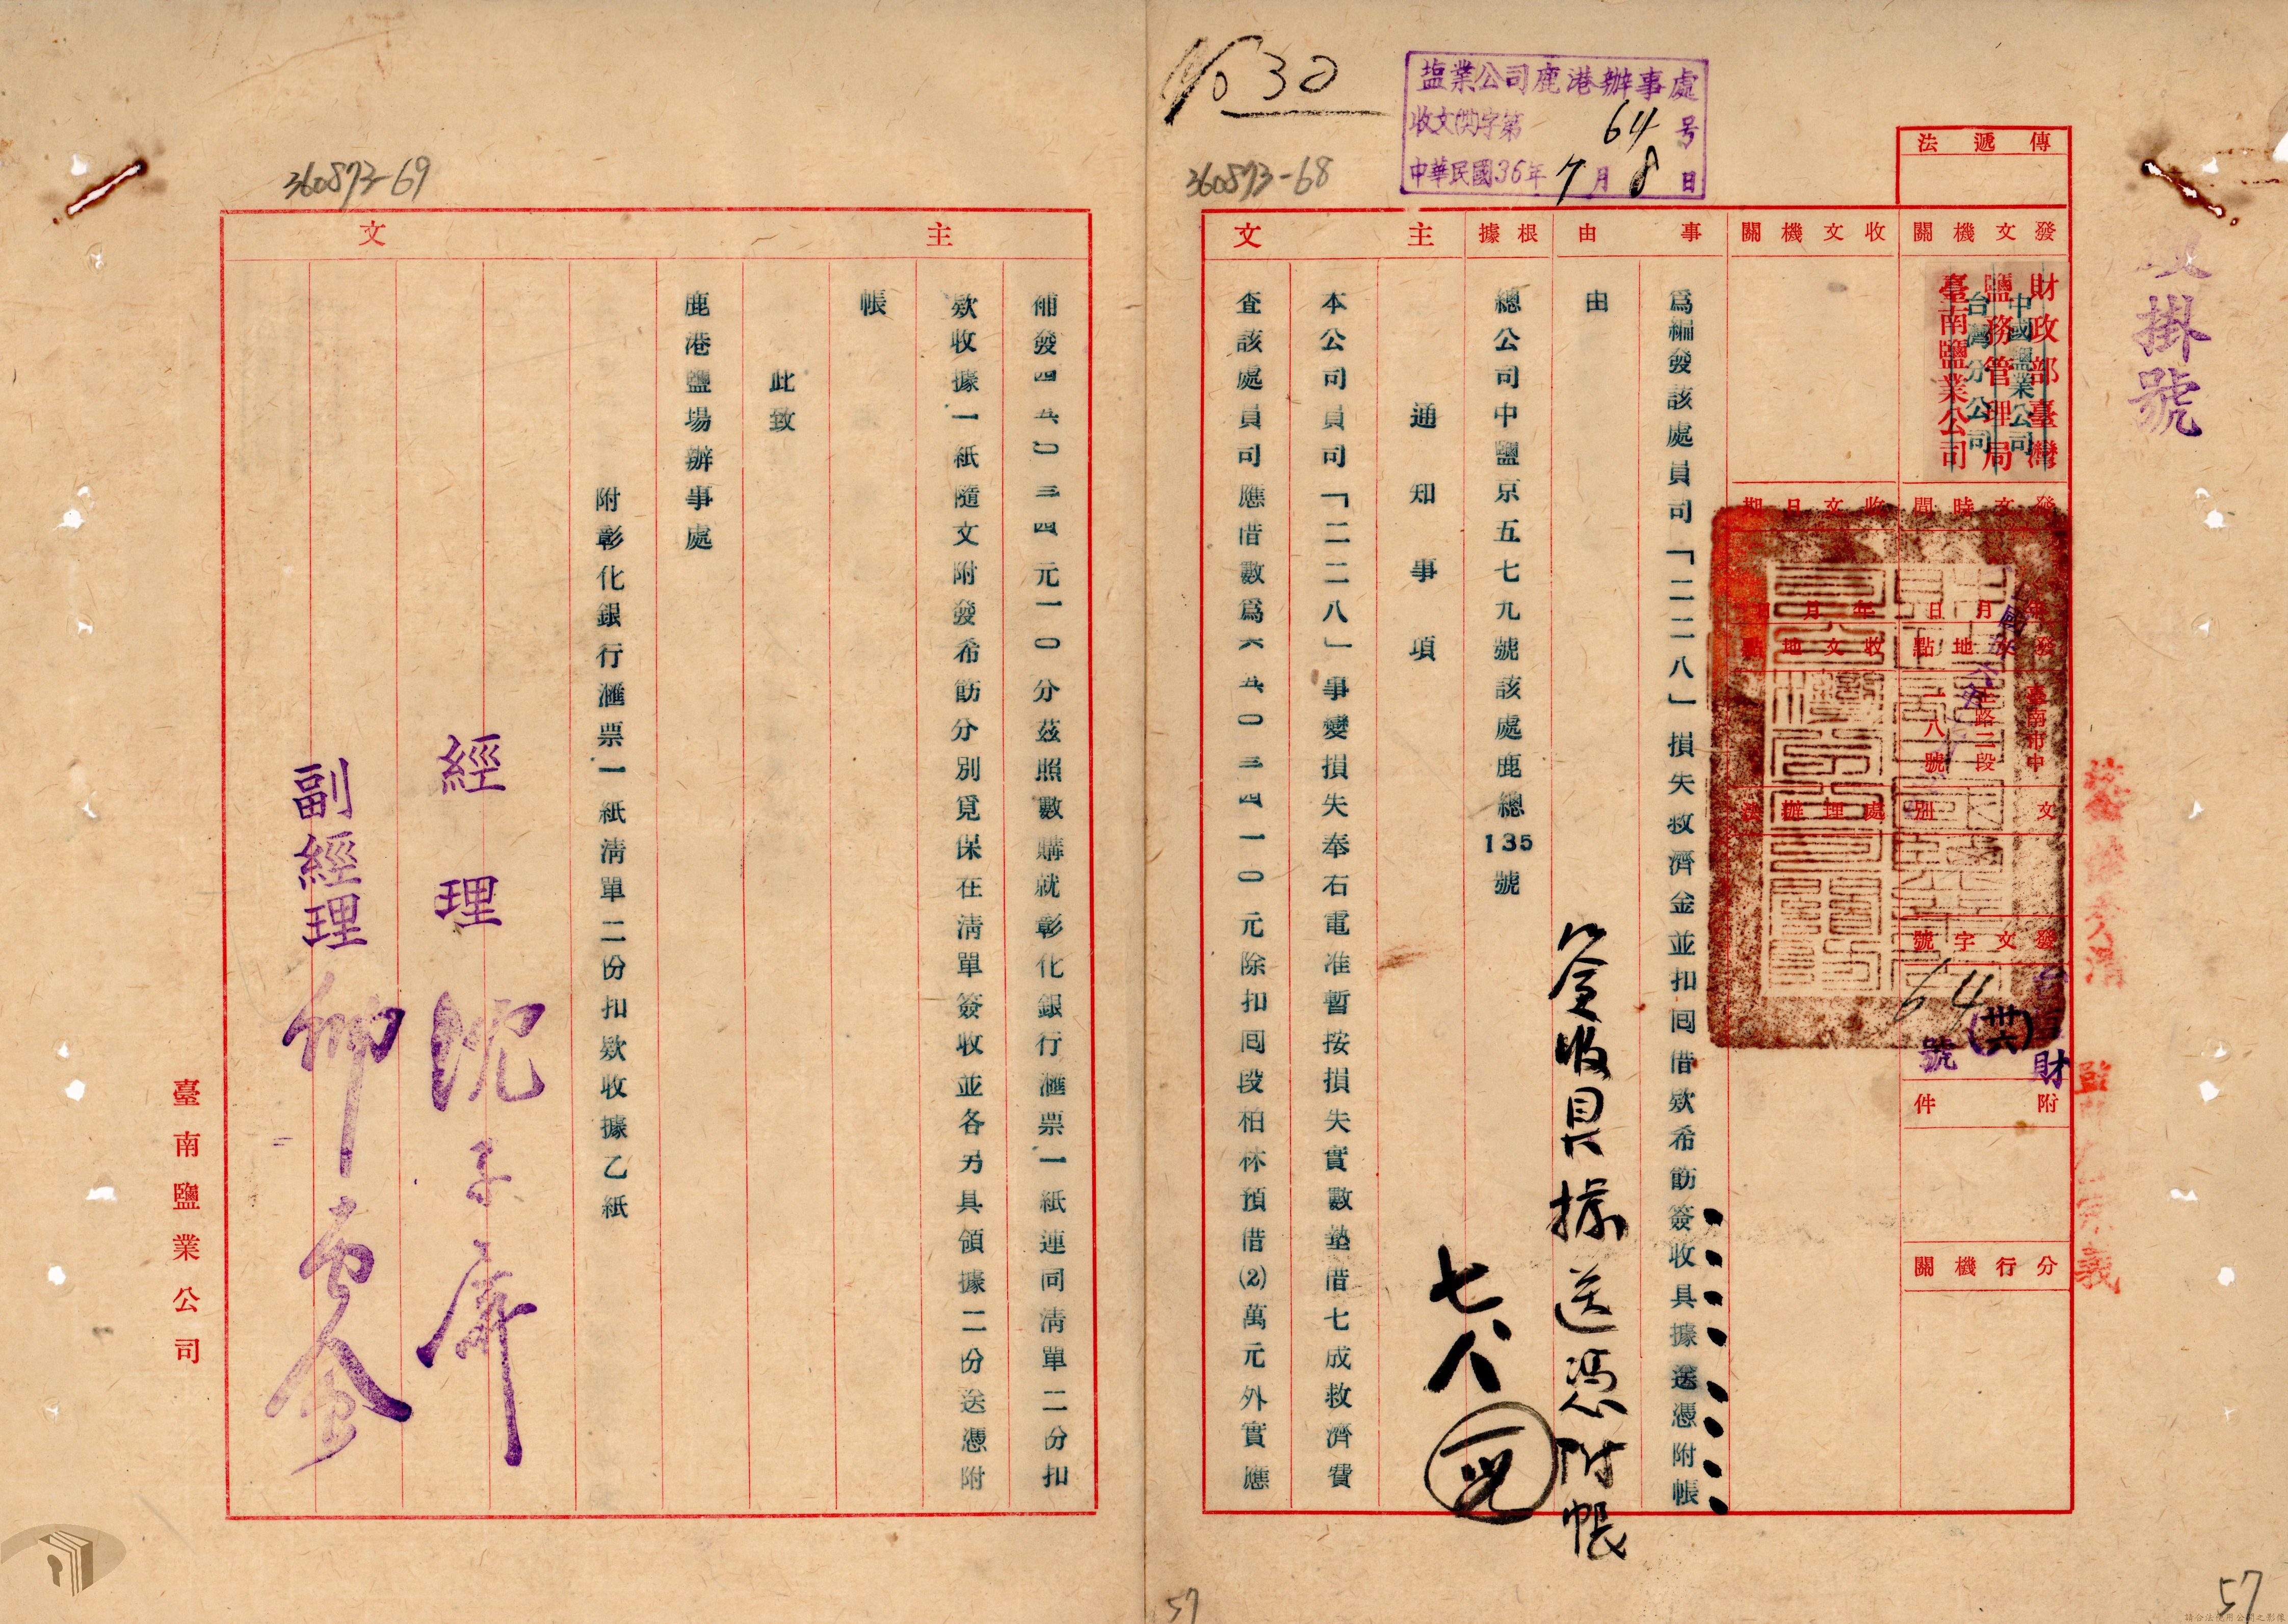 No 30
塩業公司鹿港辦事處
收文(卅六)字第64号
中華民國36年7月8日
360873-68
掛號
傳遞法
發文機關
財政部臺灣
鹽務管理局
臺南鹽業公司
中國鹽業公司
台灣分公司
收文機關
發文時間
年 月 日
收文日期
年 月
發文地點
臺南市中
正路二段
一八號
收文地點
文別
處理辦法
發文字號
財
(卅六)
64
號
附件
分行機關
事由
為編發該處員司「二二八」損失救濟金並扣囘借欵希飭簽收具據送憑附帳
由
簽收具據送憑附帳
根據
總公司中鹽京五七九號該處鹿總135號
七八
主文
通知事項
本公司員司「二二八」事變損失奉右電准暫按損失實數墊借七成救濟費
查該處員司應借數為六五〇三四一〇元除扣囘段柏林預借(2)萬元外實應
57
57
360873-69
主文
補發四五〇三四元一〇分茲照數購就彰化銀行滙票一紙連同清單二份扣
欵收據一紙隨文附發希飭分別覓保在清單簽收並各另具領據二份送憑附
帳
此致
鹿港鹽場辦事處
附彰化銀行滙票一紙清單二份扣欵收據乙紙
經理
副經理
臺南鹽業公司